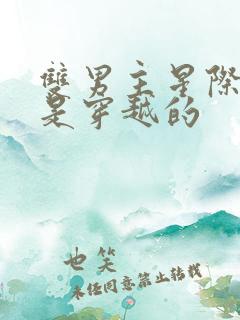 雙男主星際
是穿越的
也笑
未经同意禁止转载